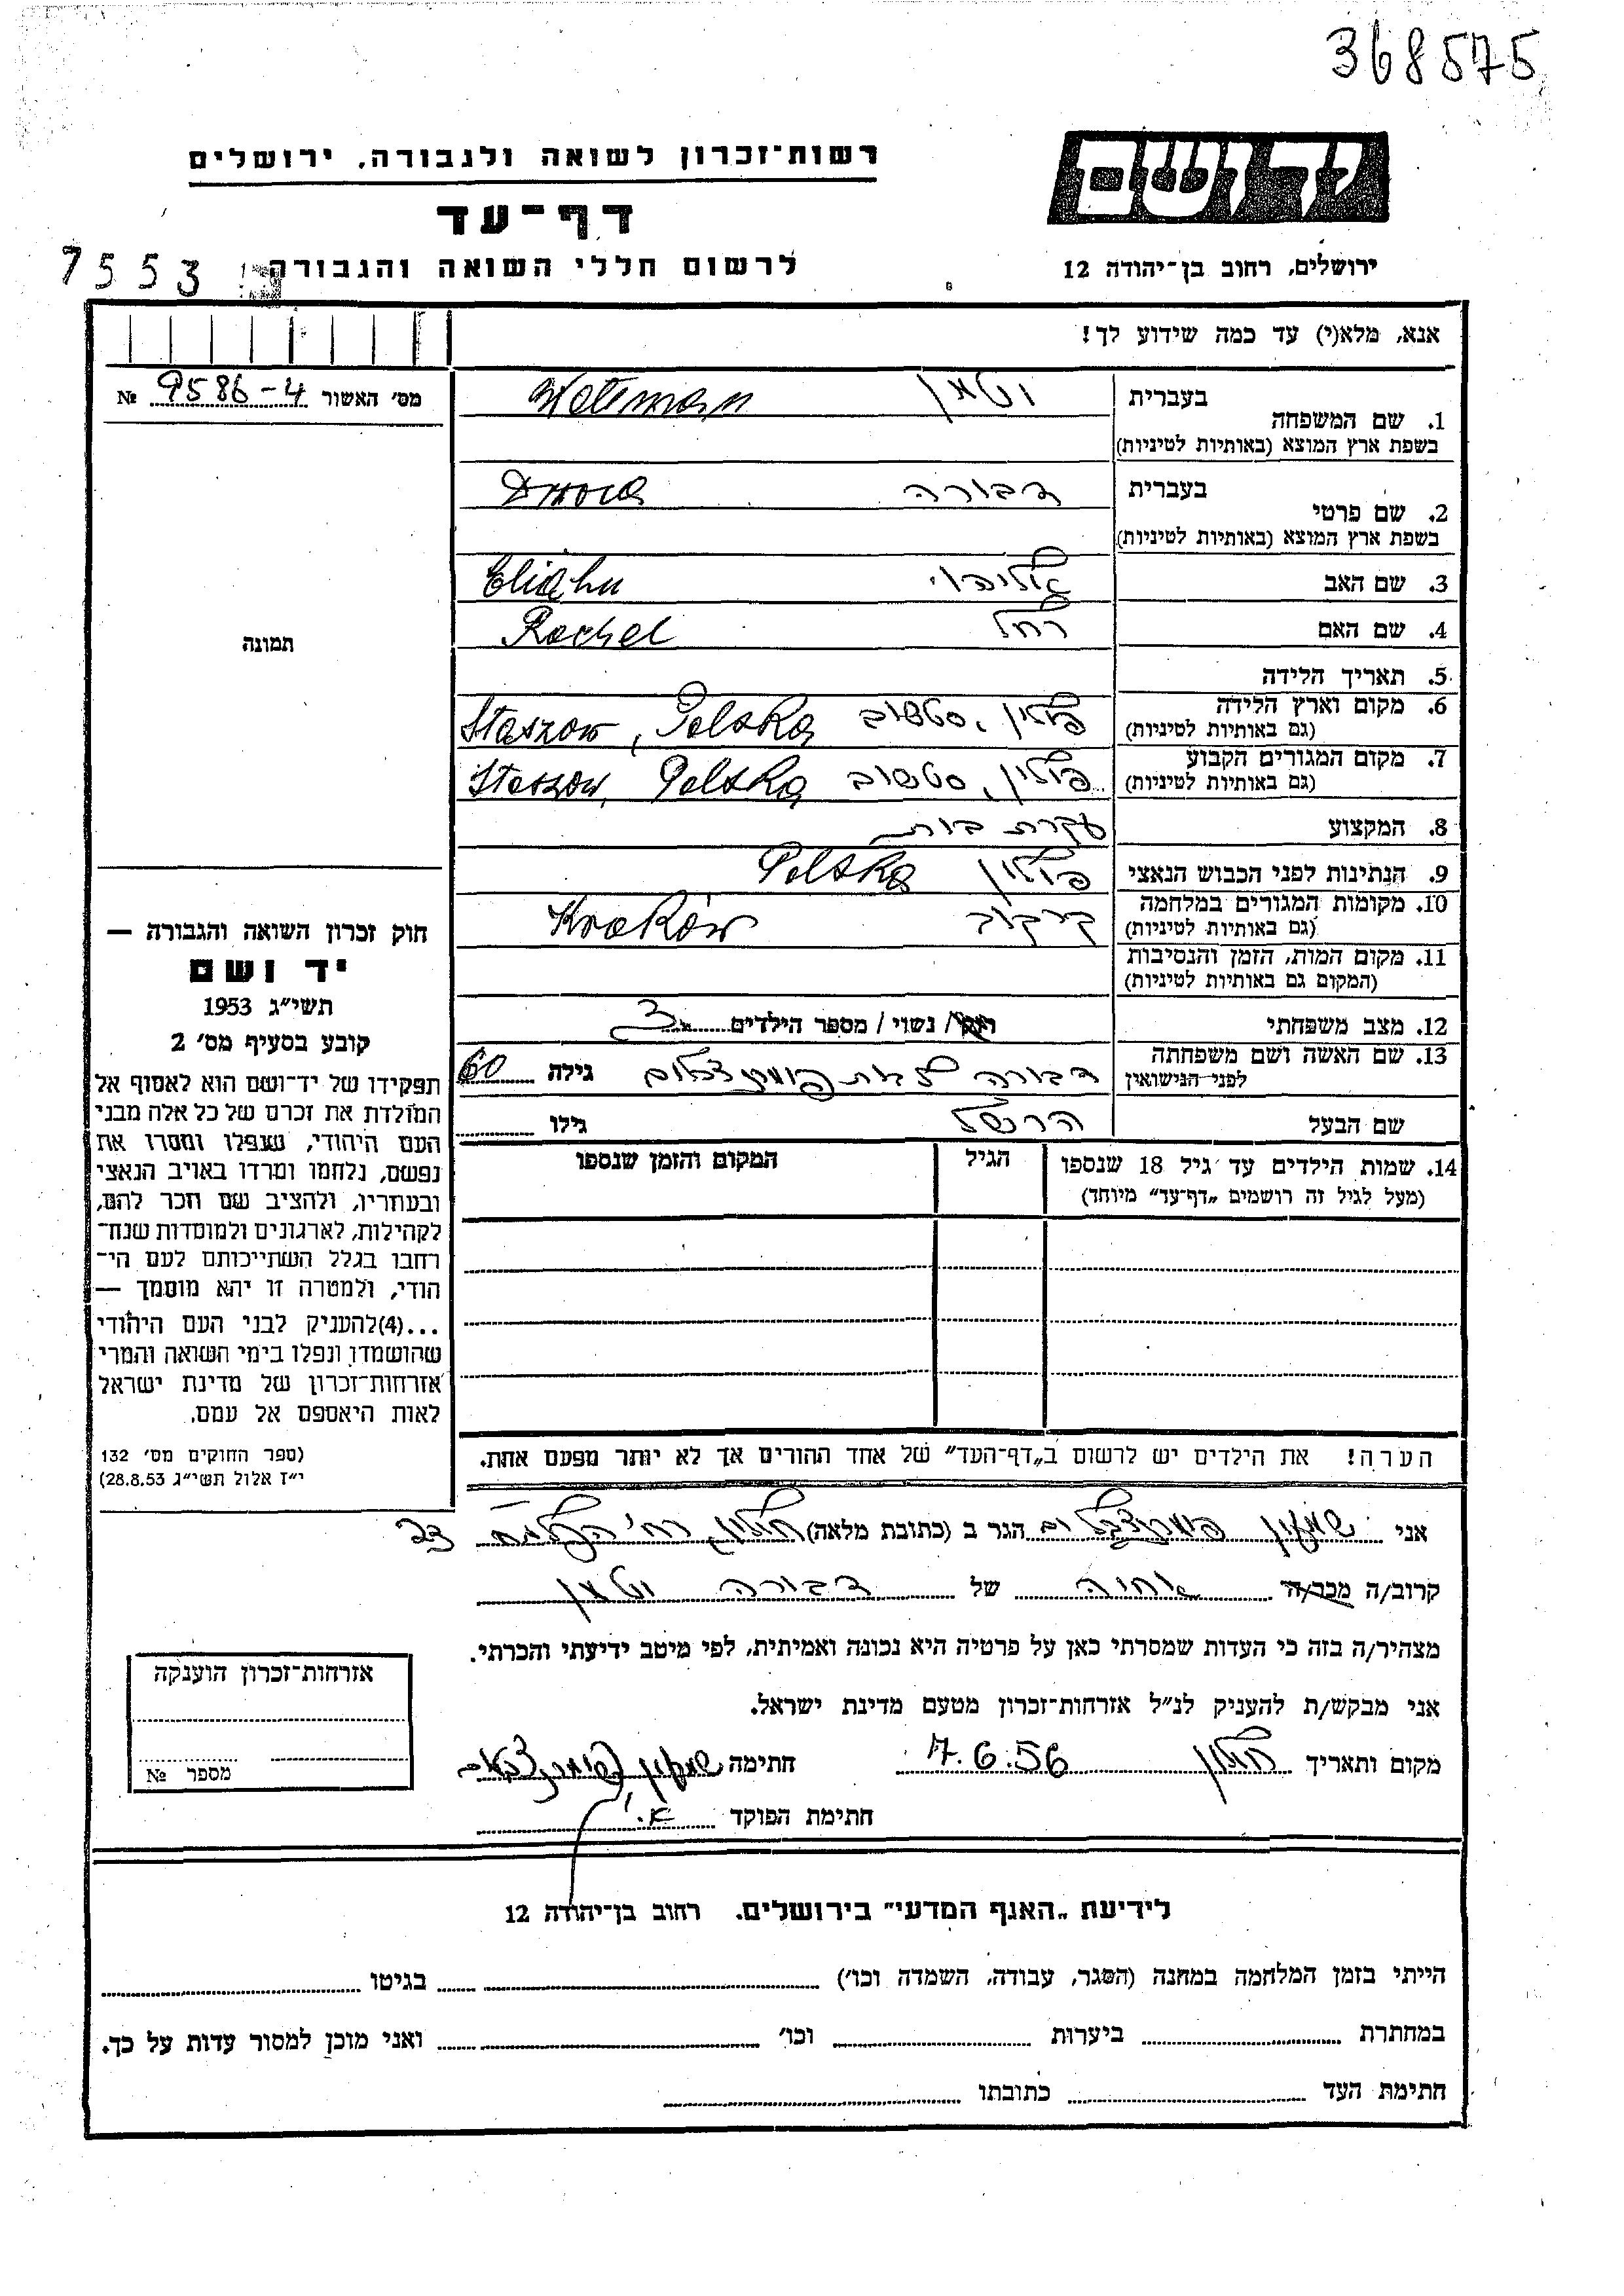 368575
רשות־זכרון לשואה ולגבורה, ירושלים
יד ושם
דף־עד
לרשום חללי השואה והגבורה
7553
ירושלים, רחוב בן־יהודה 12
אנא, מלא(י) עד כמה שידוע לך!
מס' האשור 9586-4 №
1. שם המשפחה
בעברית וטמן Watman
בשפת ארץ המוצא (באותיות לטיניות)
2. שם פרטי
בעברית דבורה
בשפת ארץ המוצא (באותיות לטיניות)
3. שם האב אליהו Eliahu
4. שם האם רחל Rachel
תמונה
5. תאריך הלידה
6. מקום וארץ הלידה פולין, סטשוב Staszow, Polska
(גם באותיות לטיניות)
7. מקום המגורים הקבוע פולין, סטשוב Staszow, Polska
(גם באותיות לטיניות)
8. המקצוע עקרת בית
9. הנתינות לפני הכבוש הנאצי פולין Polska
10. מקומות המגורים במלחמה קרקוב Kraków
(גם באותיות לטיניות)
11. מקום המות, הזמן והנסיבות
(המקום גם באותיות לטיניות)
12. מצב משפחתי רווק / נשוי / מספר הילדים 3
13. שם האשה ושם משפחתה דבורה לבית גילה 60
לפני הנישואין
שם הבעל הרשל גילו
14. שמות הילדים עד גיל 18 שנספו הגיל המקום והזמן שנספו
(מעל לגיל זה רושמים „דף־עד" מיוחד)
חוק זכרון השואה והגבורה —
יד ושם
תשי"ג 1953
קובע בסעיף מס' 2
תפקידו של יד־ושם הוא לאסוף אל
המולדת את זכרם של כל אלה מבני
העם היהודי, שנפלו ומסרו את
נפשם, נלחמו ומרדו באויב הנאצי
ובעוזריו, ולהציב שם וזכר להם,
לקהילות, לארגונים ולמוסדות שנח־
רחבו בגלל השתייכותם לעם הי־
הודי, ולמטרה זו יהא מוסמך —
...(4)להעניק לבני העם היהודי
שהושמדו ונפלו בימי השואה והמרי
אזרחות־זכרון של מדינת ישראל
לאות היאספם אל עמם.
(ספר החוקים מס' 132
י"ז אלול תשי"ג 28.8.53)
הערה! את הילדים יש לרשום ב„דף־העד" של אחד ההורים אך לא יותר מפעם אחת.
אני שמעון הגר ב (כתובת מלאה) חולון, רח' 23
קרוב/ה מכר/ה אחיה של דבורה וטמן
מצהיר/ה בזה כי העדות שמסרתי כאן על פרטיה היא נכונה ואמיתית, לפי מיטב ידיעתי והכרתי.
אני מבקש/ת להעניק לנ"ל אזרחות־זכרון מטעם מדינת ישראל.
מקום ותאריך חולון 7.6.56 חתימה שמעון
חתימת הפוקד
אזרחות־זכרון הוענקה
מספר №
לידיעת „האגף המדעי" בירושלים. רחוב בן־יהודה 12
הייתי בזמן המלחמה במחנה (הסגר, עבודה, השמדה וכו') בגיטו
במחתרת ביערות וכו' ואני מוכן למסור עדות על כך.
חתימת העד כתובתו